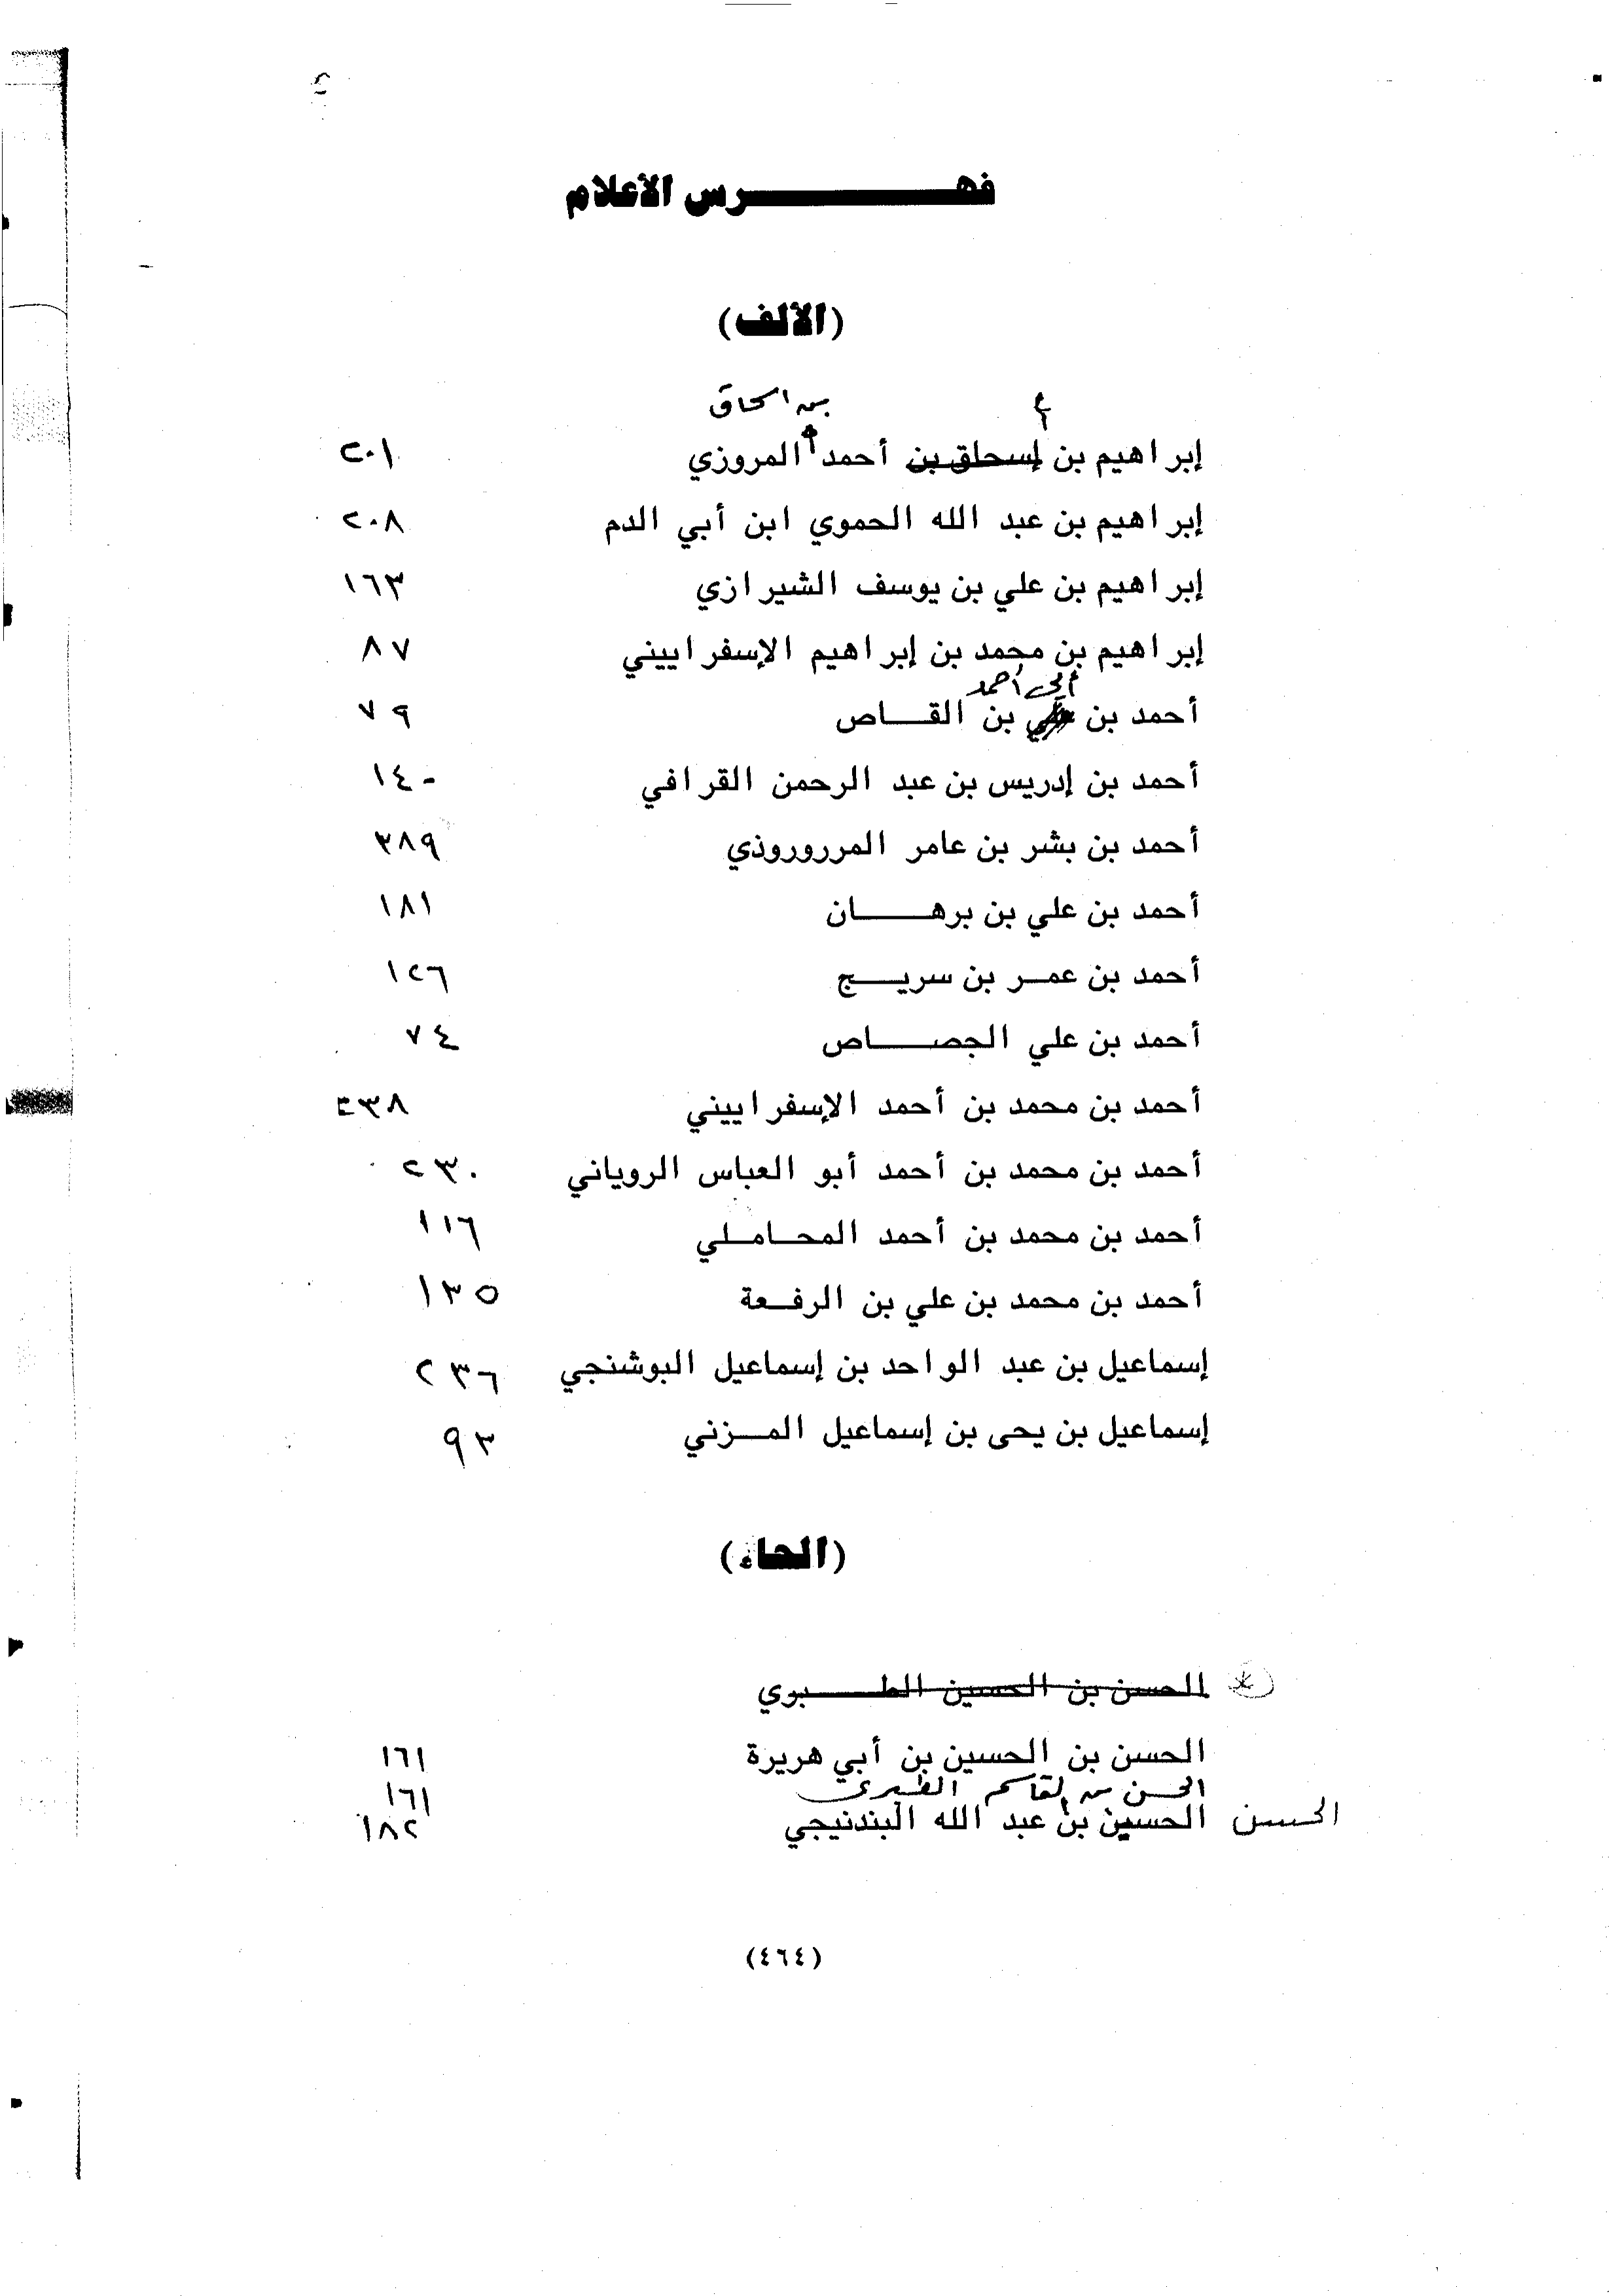 فهرس الأعلام
(الألف)
بن اسحاق
إبراهيم بن إسحاق بن أحمد المروزي ٢٠١
إبراهيم بن عبد الله الحموي ابن أبي الدم ٢٠٨
إبراهيم بن علي بن يوسف الشيرازي ١٦٣
إبراهيم بن محمد بن إبراهيم الإسفراييني ٨٧
أبي أحمد
أحمد بن بن القاص ٧٩
أحمد بن إدريس بن عبد الرحمن القرافي ١٤٠
أحمد بن بشر بن عامر المرروروذي ٣٨٩
أحمد بن علي بن برهان ١٨١
أحمد بن عمر بن سريج ١٢٦
أحمد بن علي الجصاص ٧٤
أحمد بن محمد بن أحمد الإسفراييني ٢٣٨
أحمد بن محمد بن أحمد أبو العباس الروياني ٢٣٠
أحمد بن محمد بن أحمد المحاملي ١١٦
أحمد بن محمد بن علي بن الرفعة ١٣٥
إسماعيل بن عبد الواحد بن إسماعيل البوشنجي ٢٣٦
إسماعيل بن يحى بن إسماعيل المزني ٩٣
(الحاء)
* الحسن بن الحسين الطبري
الحسن بن الحسين بن أبي هريرة ١٦١
الحسن بن القاسم الطبري ١٦١
الحسن الحسين بن عبد الله البندنيجي ١٨٢
(٤٦٤)